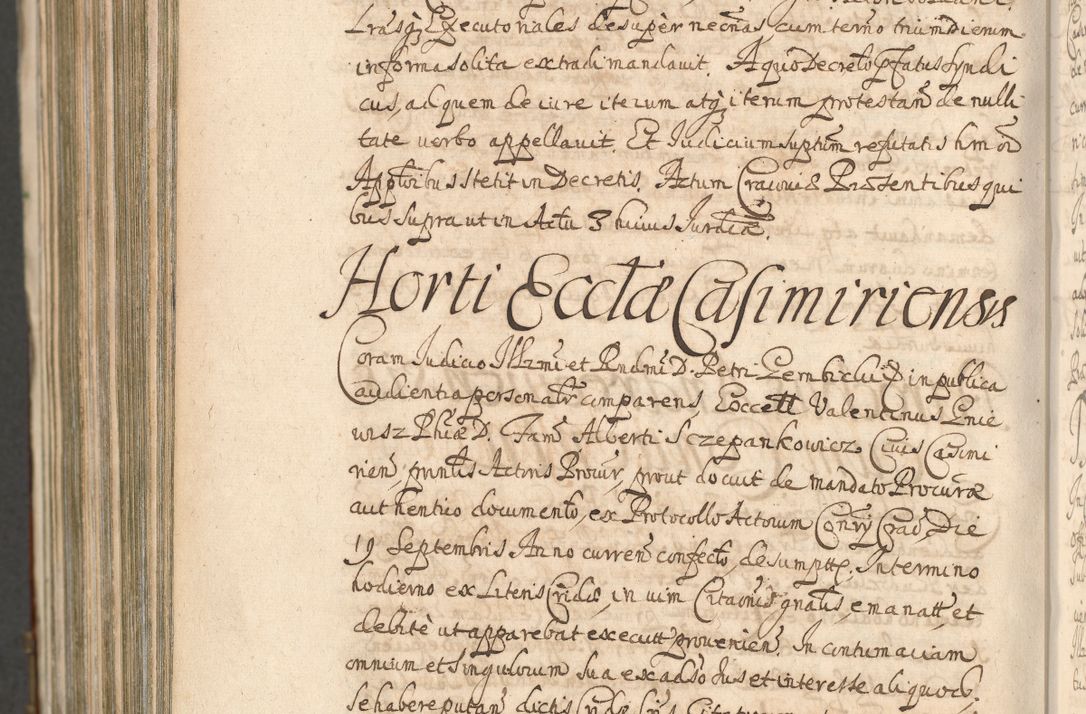 Lrasq, Executoriales desuper necnas cum termo trium Dierum
in forma solita extradi mandavit. A quo Decreto pfatus Syndi
cus, ad quem de iure iterum atq, iterum protestans de nulli
tate verbo appellavit. Et Judicium suptum refutatis hmoi
Apptoribus stetit in Decretis. Actum Cracoviæ Præsentibus qui
bus supra ut in Actu 3 huius Jurdicæ.
Horti Ecctæ Casimiriensis
Coram Judicio Illrmi et Rndmi D. Petri Gembicki Ep in publica
audientia personatr comparens Excell Valentinus Gnie
wisz Phiæ D. Fami Alberti Sczepankowicz Civis Casimi
rien, prmtis Actoris Procur, prout docuit de mandato Procuræ
authentico documento, ex Protocollo Actorum Consry Crac, Die
19 Septembris Anno curren confecto, desumptt, In termino
hodierno ex Literis Cridæ, in vim Citaonis gnalis emanatt, et
debitè ut apparebat executt provenien. In contumaciam
omnium et singulorum sua ex adso Jus et interesse aliquod
se habere putan dictis